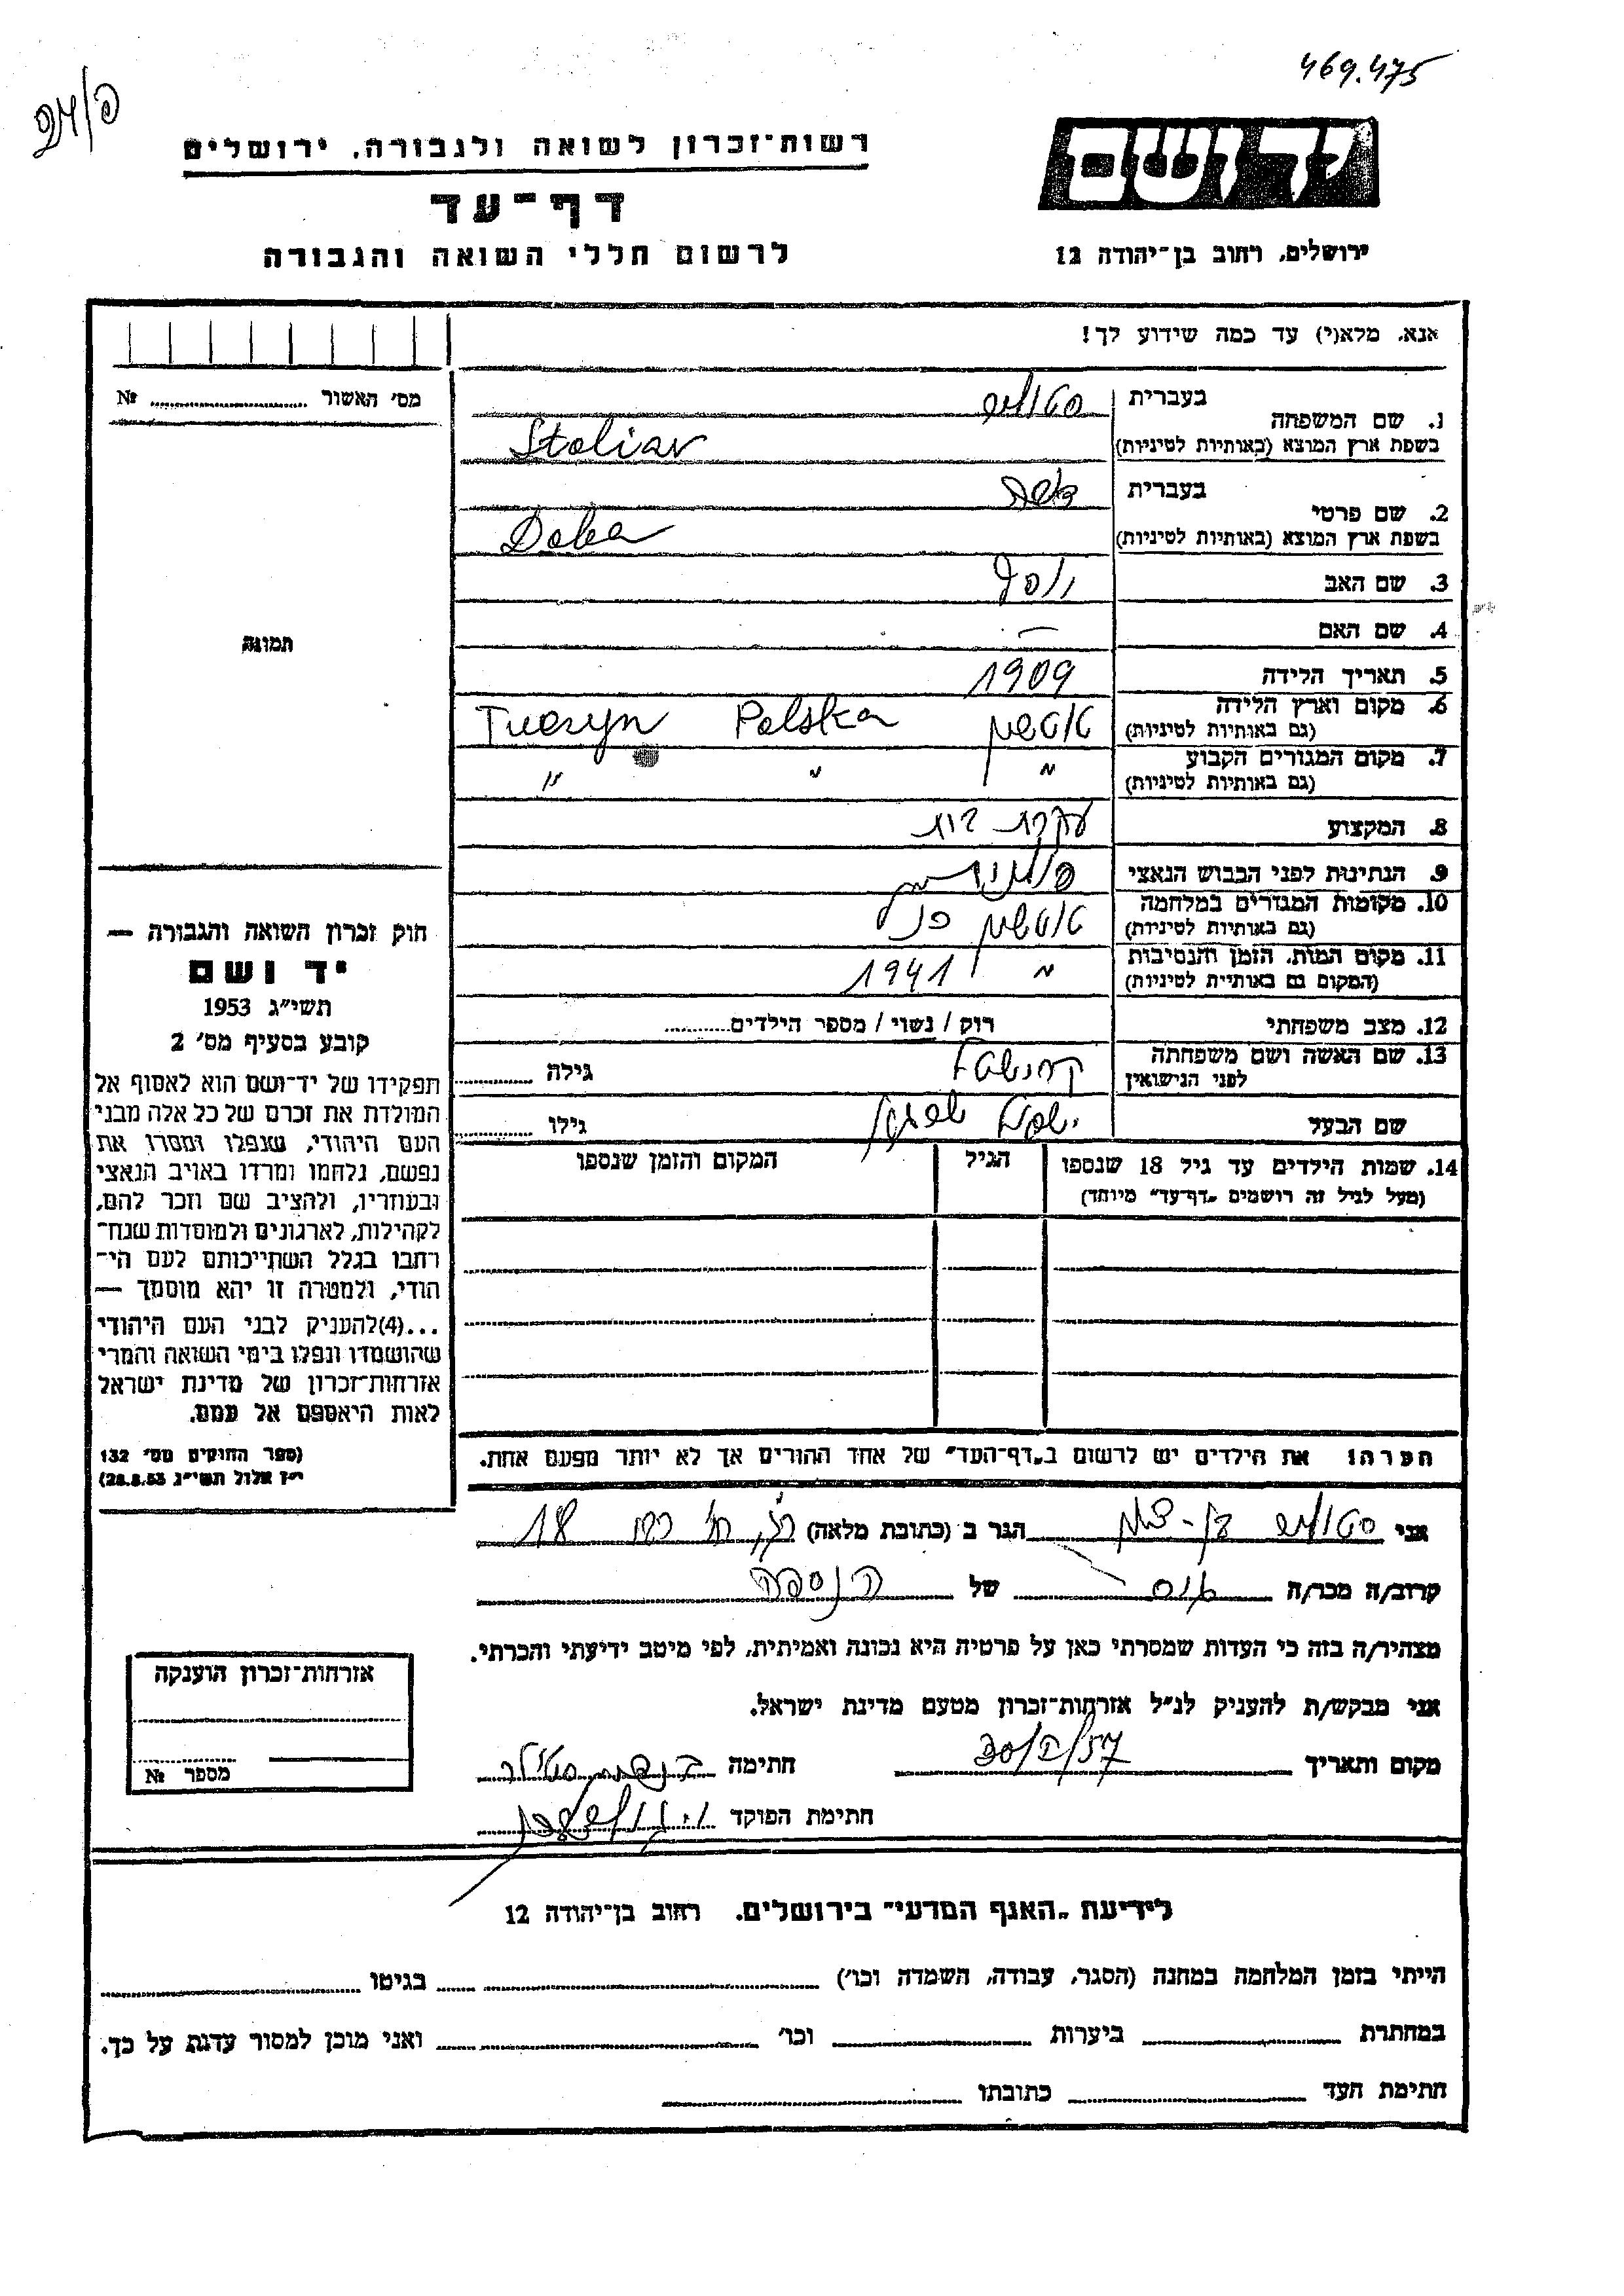 469.475
יד ושם
ירושלים, רחוב בן־יהודה 12
רשות־זכרון לשואה ולגבורה, ירושלים
דף־עד
לרשום חללי השואה והגבורה
אנא, מלא(י) עד כמה שידוע לך!
מס' האשור № 
תמונה
1. שם המשפחה בעברית
בשפת ארץ המוצא (באותיות לטיניות) Stoliar
2. שם פרטי בעברית
בשפת ארץ המוצא (באותיות לטיניות) Doba
3. שם האב יוסף
4. שם האם —
5. תאריך הלידה 1909
6. מקום וארץ הלידה Polska Tuczyn
(גם באותיות לטיניות)
7. מקום המגורים הקבוע " " "
(גם באותיות לטיניות)
8. המקצוע עקרת בית
9. הנתינות לפני הכבוש הנאצי פולנית
10. מקומות המגורים במלחמה
(גם באותיות לטיניות)
11. מקום המות, הזמן והנסיבות " 1941
(המקום גם באותיות לטיניות)
12. מצב משפחתי רוק / נשוי / מספר הילדים
13. שם האשה ושם משפחתה
לפני הנישואין גילה
שם הבעל גילו
14. שמות הילדים עד גיל 18 שנספו הגיל המקום והזמן שנספו
(מעל לגיל זה רושמים „דף־עד" מיוחד)
הערה: את הילדים יש לרשום ב„דף־העד" של אחד ההורים אך לא יותר מפעם אחת.
חוק זכרון השואה והגבורה —
יד ושם
תשי"ג 1953
קובע בסעיף מס' 2
תפקידו של יד־ושם הוא לאסוף אל
המולדת את זכרם של כל אלה מבני
העם היהודי, שנפלו ומסרו את
נפשם, נלחמו ומרדו באויב הנאצי
ובעוזריו, ולהציב שם וזכר להם,
לקהילות, לארגונים ולמוסדות שנח־
רחבו בגלל השתייכותם לעם הי־
הודי, ולמטרה זו יהא מוסמך —
...(4)להעניק לבני העם היהודי
שהושמדו ונפלו בימי השואה והמרי
אזרחות־זכרון של מדינת ישראל
לאות היאספם אל עמם.
(ספר החוקים מס' 132
י"ז אלול תשי"ג 28.8.53)
אני הגר ב (כתובת מלאה) 18
קרוב/ה מכר/ה של הנספה
מצהיר/ה בזה כי העדות שמסרתי כאן על פרטיה היא נכונה ואמיתית, לפי מיטב ידיעתי והכרתי.
אני מבקש/ת להעניק לנ"ל אזרחות־זכרון מטעם מדינת ישראל.
מקום ותאריך חתימה
חתימת הפוקד
אזרחות־זכרון הוענקה
מספר №
לידיעת „האגף המדעי" בירושלים, רחוב בן־יהודה 12
הייתי בזמן המלחמה במחנה (הסגר, עבודה, השמדה וכו') בגיטו
במחתרת ביערות וכו' ואני מוכן למסור עדות על כך.
חתימת העד כתובתו